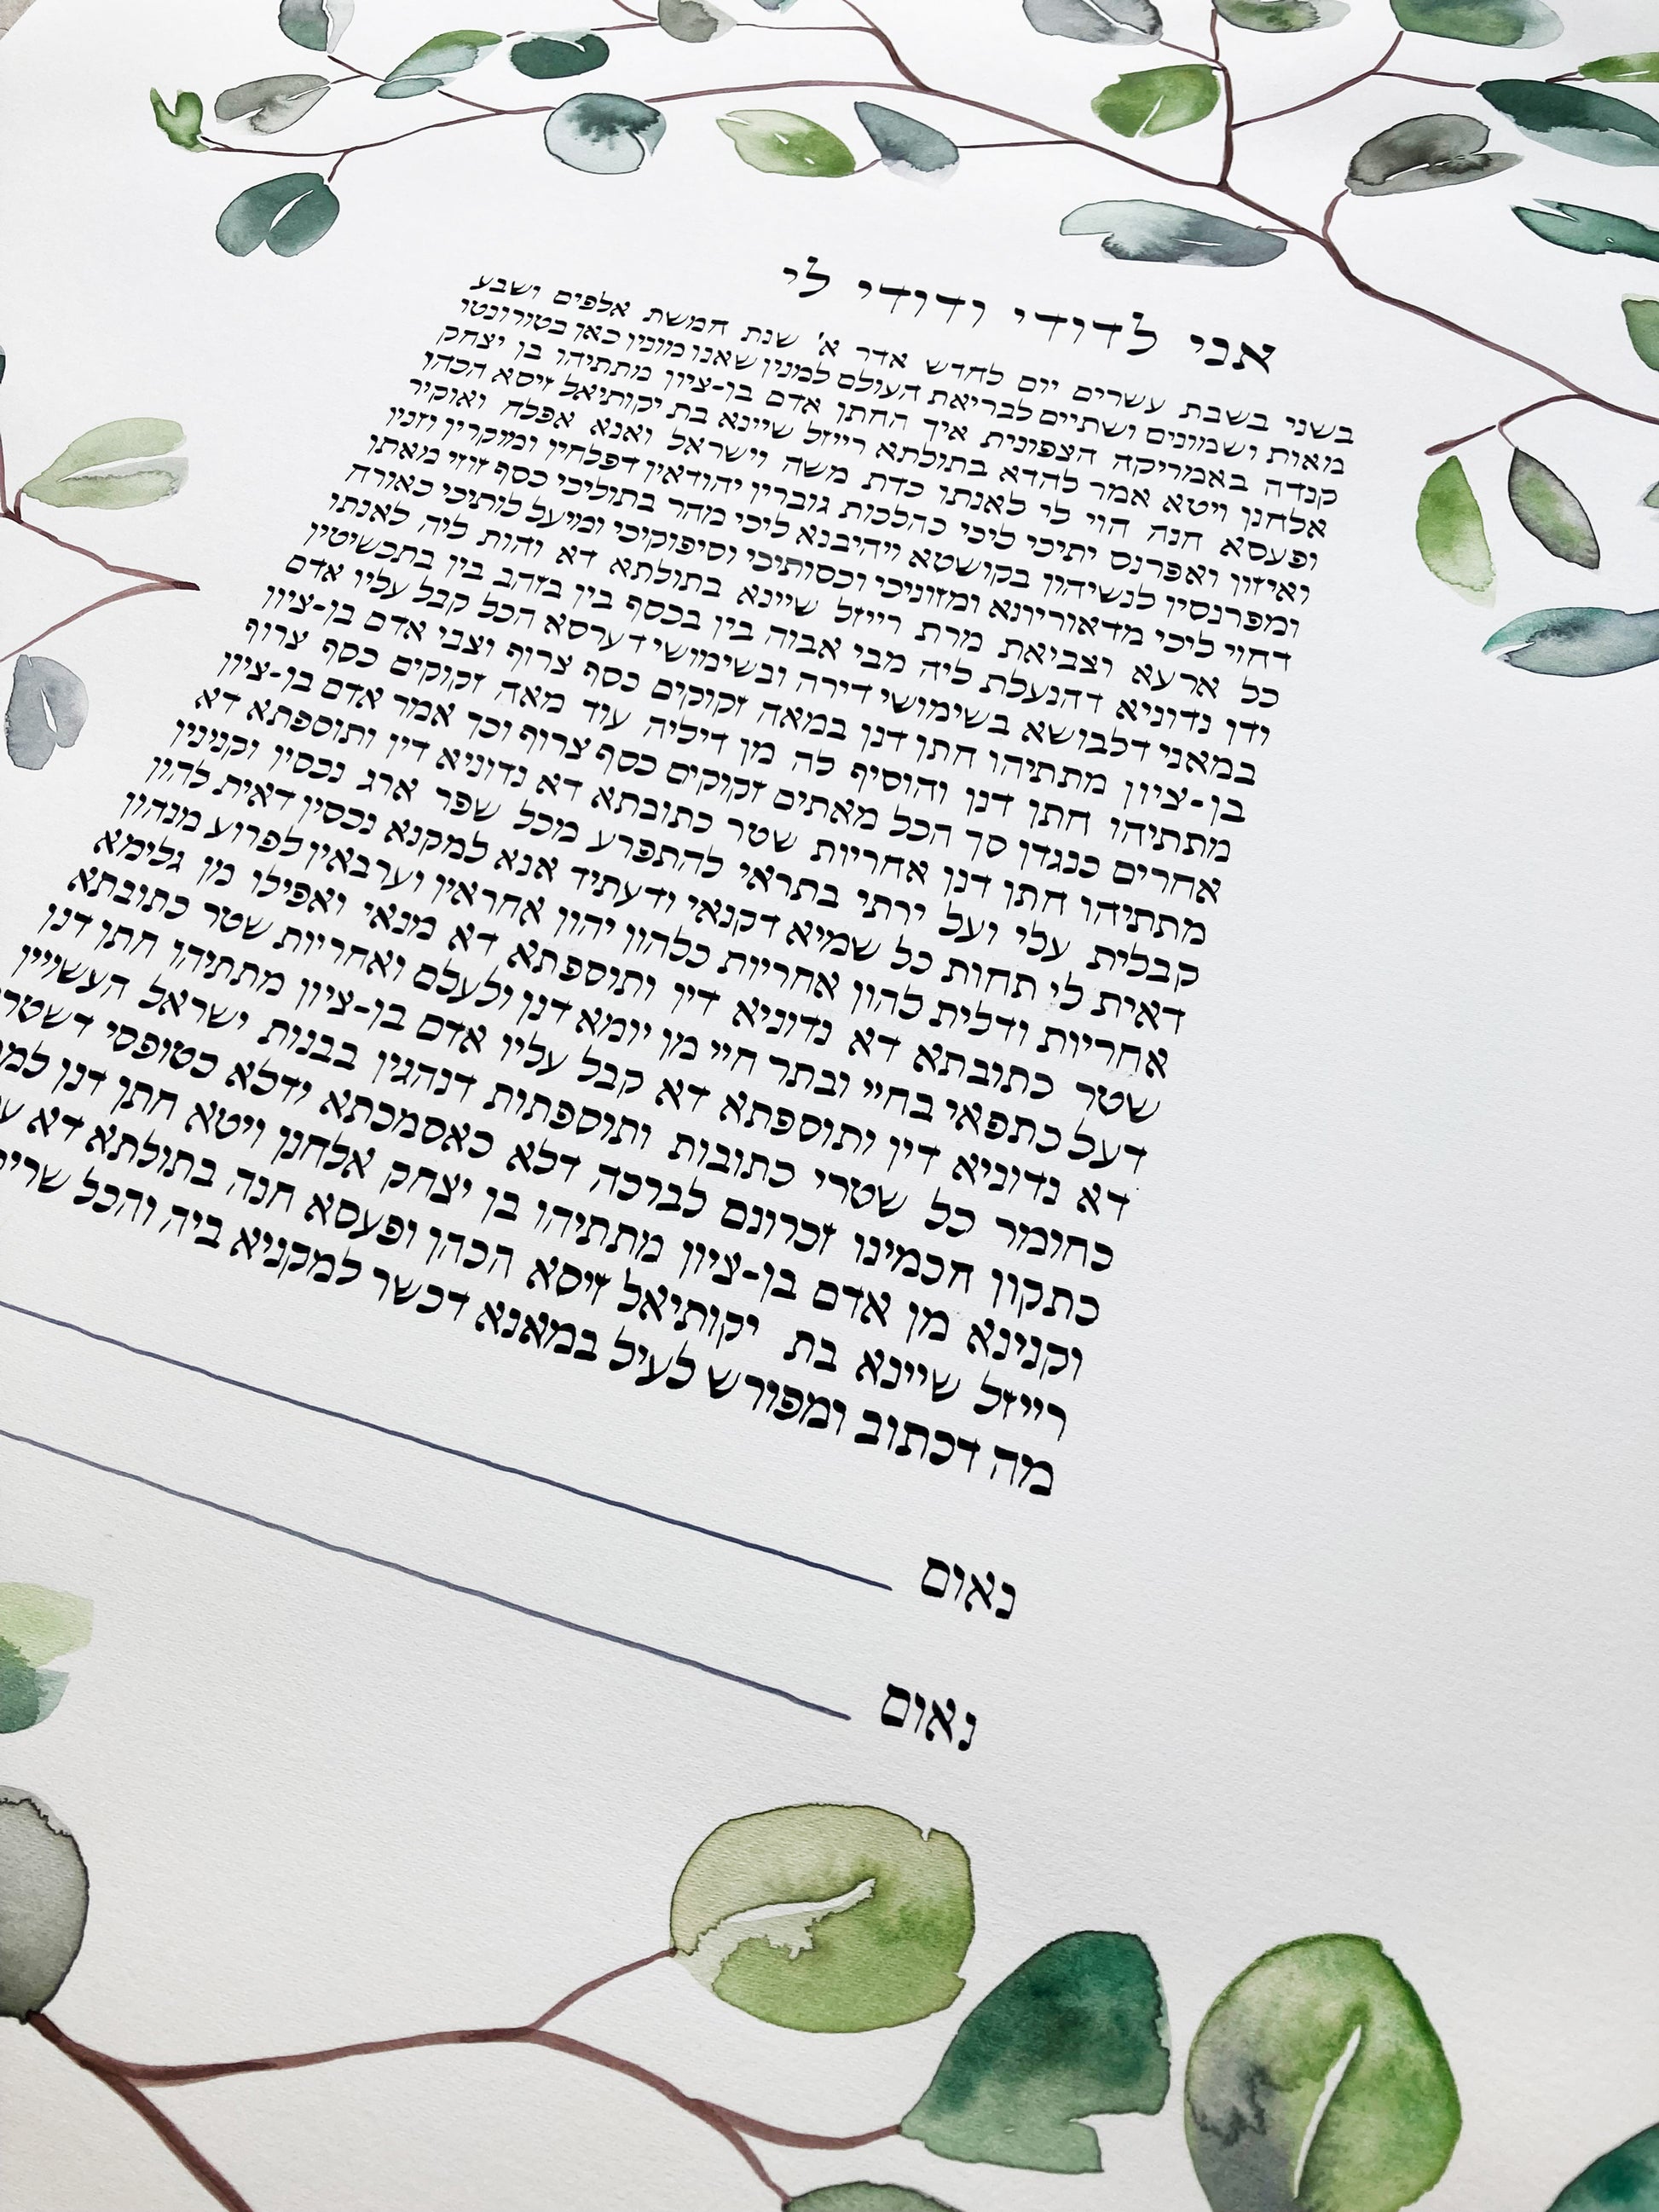 אני לדודי ודודי לי
בשני בשבת עשרים יום לחדש אדר א' שנת חמשת אלפים ושבע
מאות ושמונים ושתיים לבריאת העולם למנין שאנו מונין כאן בטורונטו
קנדה באמריקה הצפונית איך החתן אדם בן-ציון מתתיהו בן יצחק
אלחנן ויטא אמר להדא בתולתא רייזל שיינא בת יקותיאל זיסא הכהן
ופעסא חנה הוי לי לאנתו כדת משה וישראל ואנא אפלח ואוקיר
ואיזון ואפרנס יתיכי ליכי כהלכות גוברין יהודאין דפלחין ומוקרין וזנין
ומפרנסין לנשיהון בקושטא ויהיבנא ליכי מהר בתוליכי כסף זוזי מאתן
דחזי ליכי מדאוריתא ומזוניכי וכסותיכי וסיפוקיכי ומיעל לותיכי כאורח
כל ארעא וצביאת מרת רייזל שיינא בתולתא דא והות ליה לאנתו
ודן נדוניא דהנעלת ליה מבי אבוה בין בכסף בין בזהב בין בתכשיטין
במאני דלבושא בשימושי דירה ובשימושי דערסא הכל קבל עליו אדם
בן-ציון מתתיהו חתן דנן במאה זקוקים כסף צרוף וצבי אדם בן-ציון
מתתיהו חתן דנן והוסיף לה מן דיליה עוד מאה זקוקים כסף צרוף
אחרים כנגדן סך הכל מאתים זקוקים כסף צרוף וכך אמר אדם בן-ציון
מתתיהו חתן דנן אחריות שטר כתובתא דא נדוניא דין ותוספתא דא
קבלית עלי ועל ירתי בתראי להתפרע מכל שפר ארג נכסין וקנינין
דאית לי תחות כל שמיא דקנאי ודעתיד אנא למקנא נכסין דאית להון
אחריות ודלית להון אחריות כלהון יהון אחראין וערבאין לפרוע מנהון
שטר כתובתא דא נדוניא דין ותוספתא דא מנאי ואפילו מן גלימא
דעל כתפאי בחיי ובתר חיי מן יומא דנן ולעלם ואחריות שטר כתובתא
דא נדוניא דין ותוספתא דא קבל עליו אדם בן-ציון מתתיהו חתן דנן
כחומר כל שטרי כתובות ותוספתות דנהגין בבנות ישראל העשויין
כתקון חכמינו זכרונם לברכה דלא כאסמכתא ודלא כטופסי דשטרי
וקנינא מן אדם בן-ציון מתתיהו בן יצחק אלחנן ויטא חתן דנן
רייזל שיינא בת יקותיאל זיסא הכהן ופעסא חנה בתולתא דא
מה דכתוב ומפורש לעיל במאנא דכשר למקניא ביה והכל
נאום
נאום